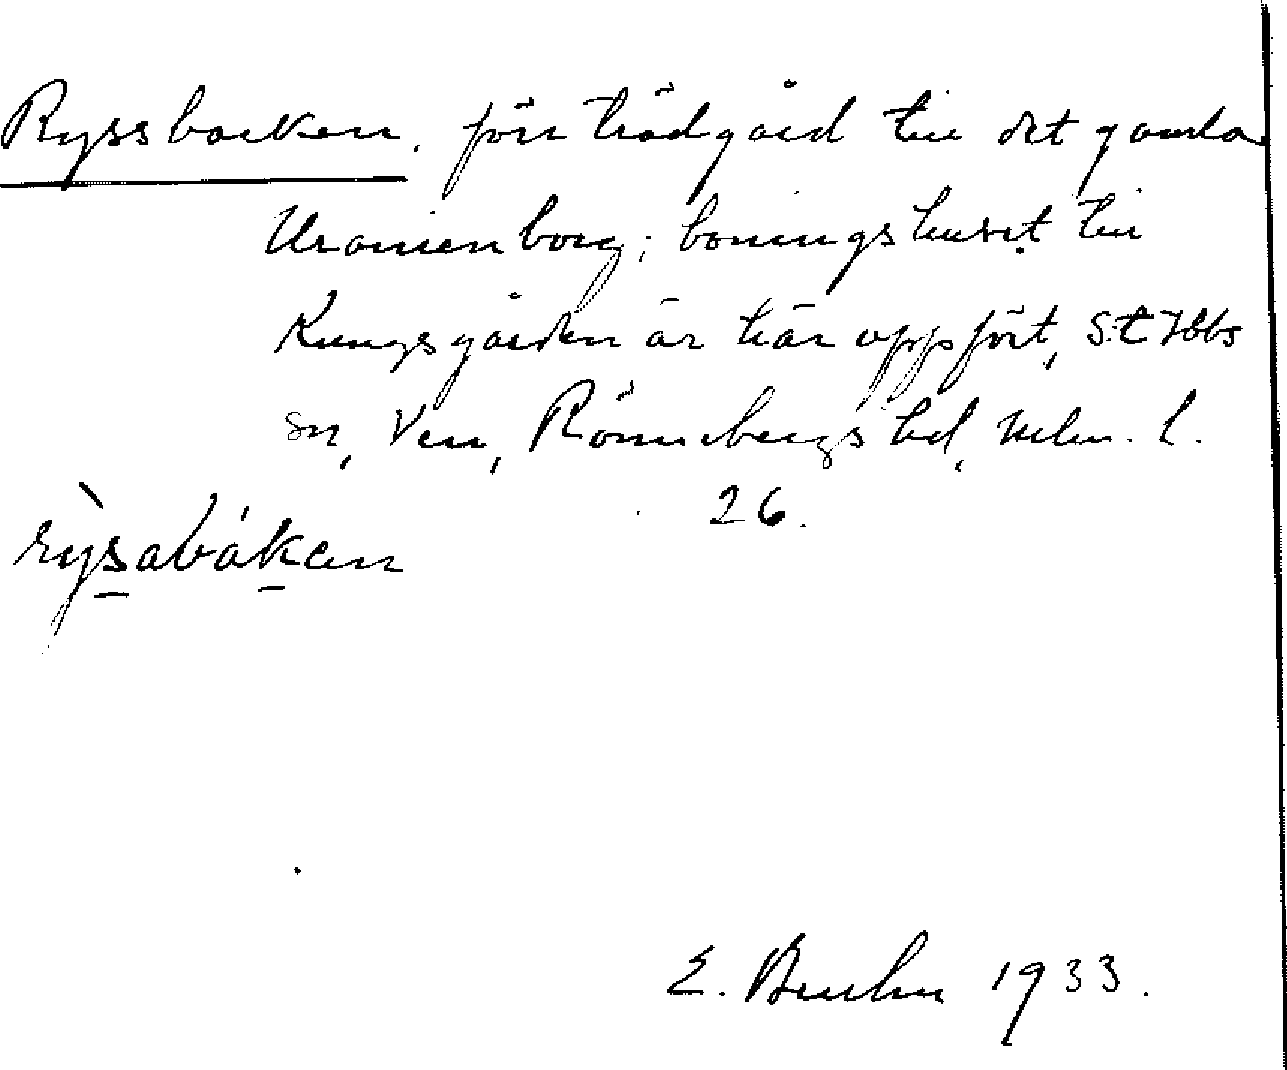 Ryssbacken, förr trädgård till det gamla
Uranienborg; boningshuset till
Kungsgården är här uppfört, S:t Ibbs
sn, Ven, Rönnebergs hd, Mlm. l.
26.
rỳsabákan
E. Bruhn 1933.